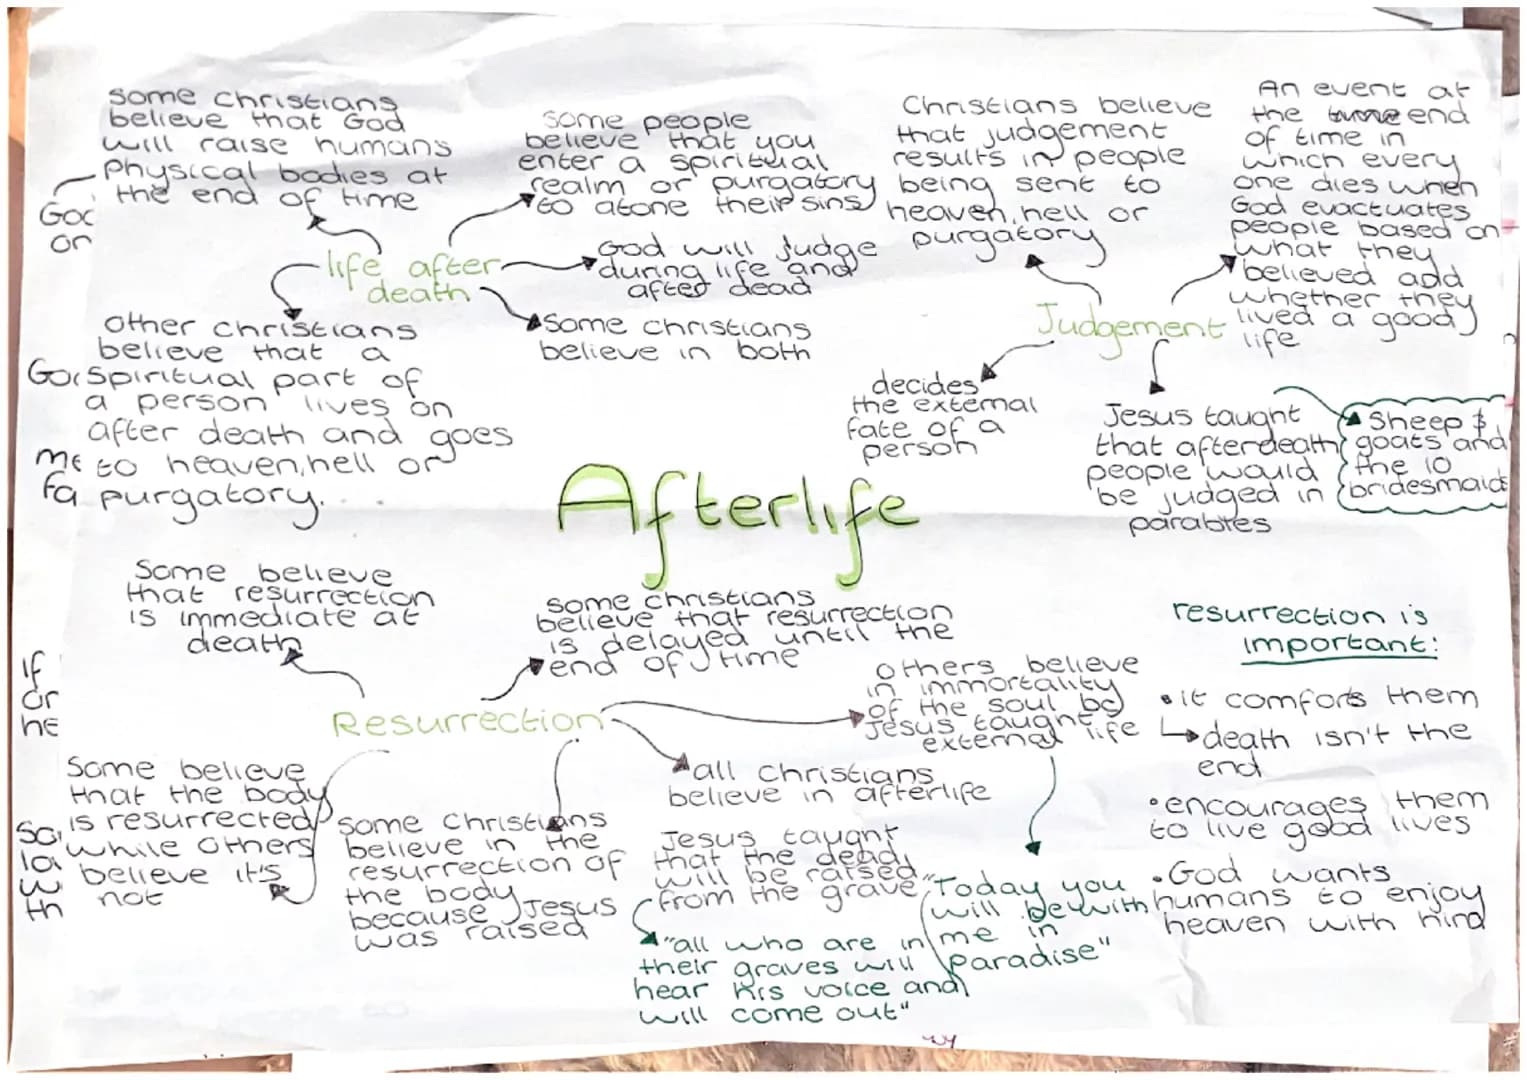 some christians
believe that God
will raise humans
physical bodies at
the end of time
some people
believe that you
enter a spiritual
realm or purgatory
to atone their sins
God will judge
during life and
after dead
Some christians
believe in both
life after
death
other christians
believe that a
spiritual part of
a person lives on
after death and goes
to heaven, hell or
purgatory.
Christians believe
that judgement
results in people
being sent to
heaven, hell or
purgatory
An event at
the end
of time in
which every
one dies when
God evactuates
people based on
what they
believed add
whether they
lived a good
life
Judgement
decides
the external
fate of a
person
Jesus taught
that after death
people would
be judged in
parables
Sheep &
goats and
the 10
bridesmaids
Afterlife
Some believe
that resurrection
is immediate at
death
some christians
believe that resurrection
is delayed until the
end of time
Resurrection
others believe
in immortality
of the soul bc
Jesus taught
external life
all christians
believe in afterlife
Some believe
that the body
is resurrected
while others
believe it's
not
some christians
believe in the
resurrection of
the body
because Jesus
was raised
Jesus taught
that the dead
will be raised
from the grave
"all who are in
their graves will
hear his voice and
will come out"
"Today you
will be with
me in
paradise"
resurrection is
important:
• it comforts them
death isn't the
end
• encourages them
to live good lives
• God wants
humans to enjoy
heaven with hind
If
or
he